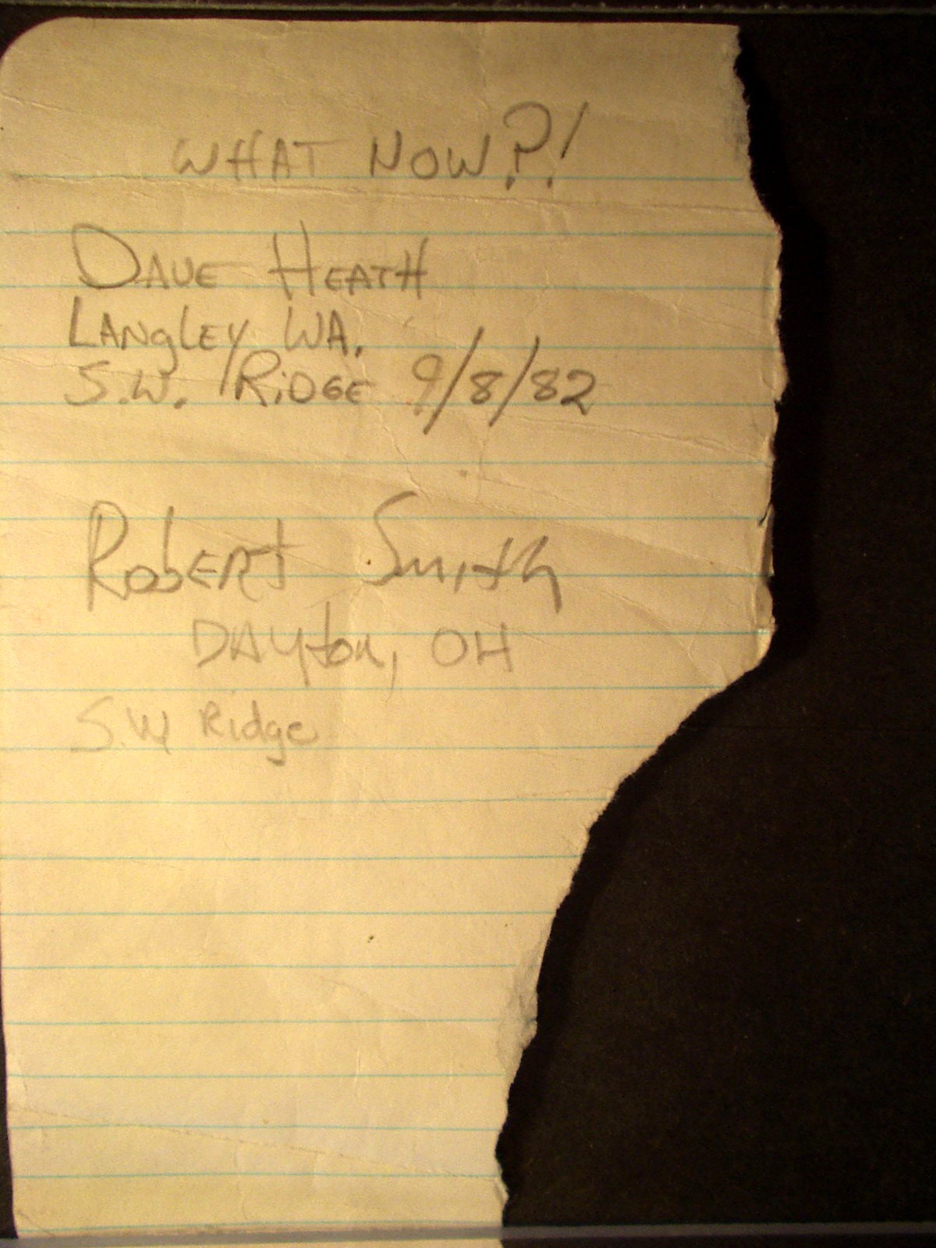 WHAT NOW?!
DAVE HEATH
LANgLEY WA.
S.W. RiDGE 9/8/82
RobERt Smith
DAyton, OH
S.W. Ridge